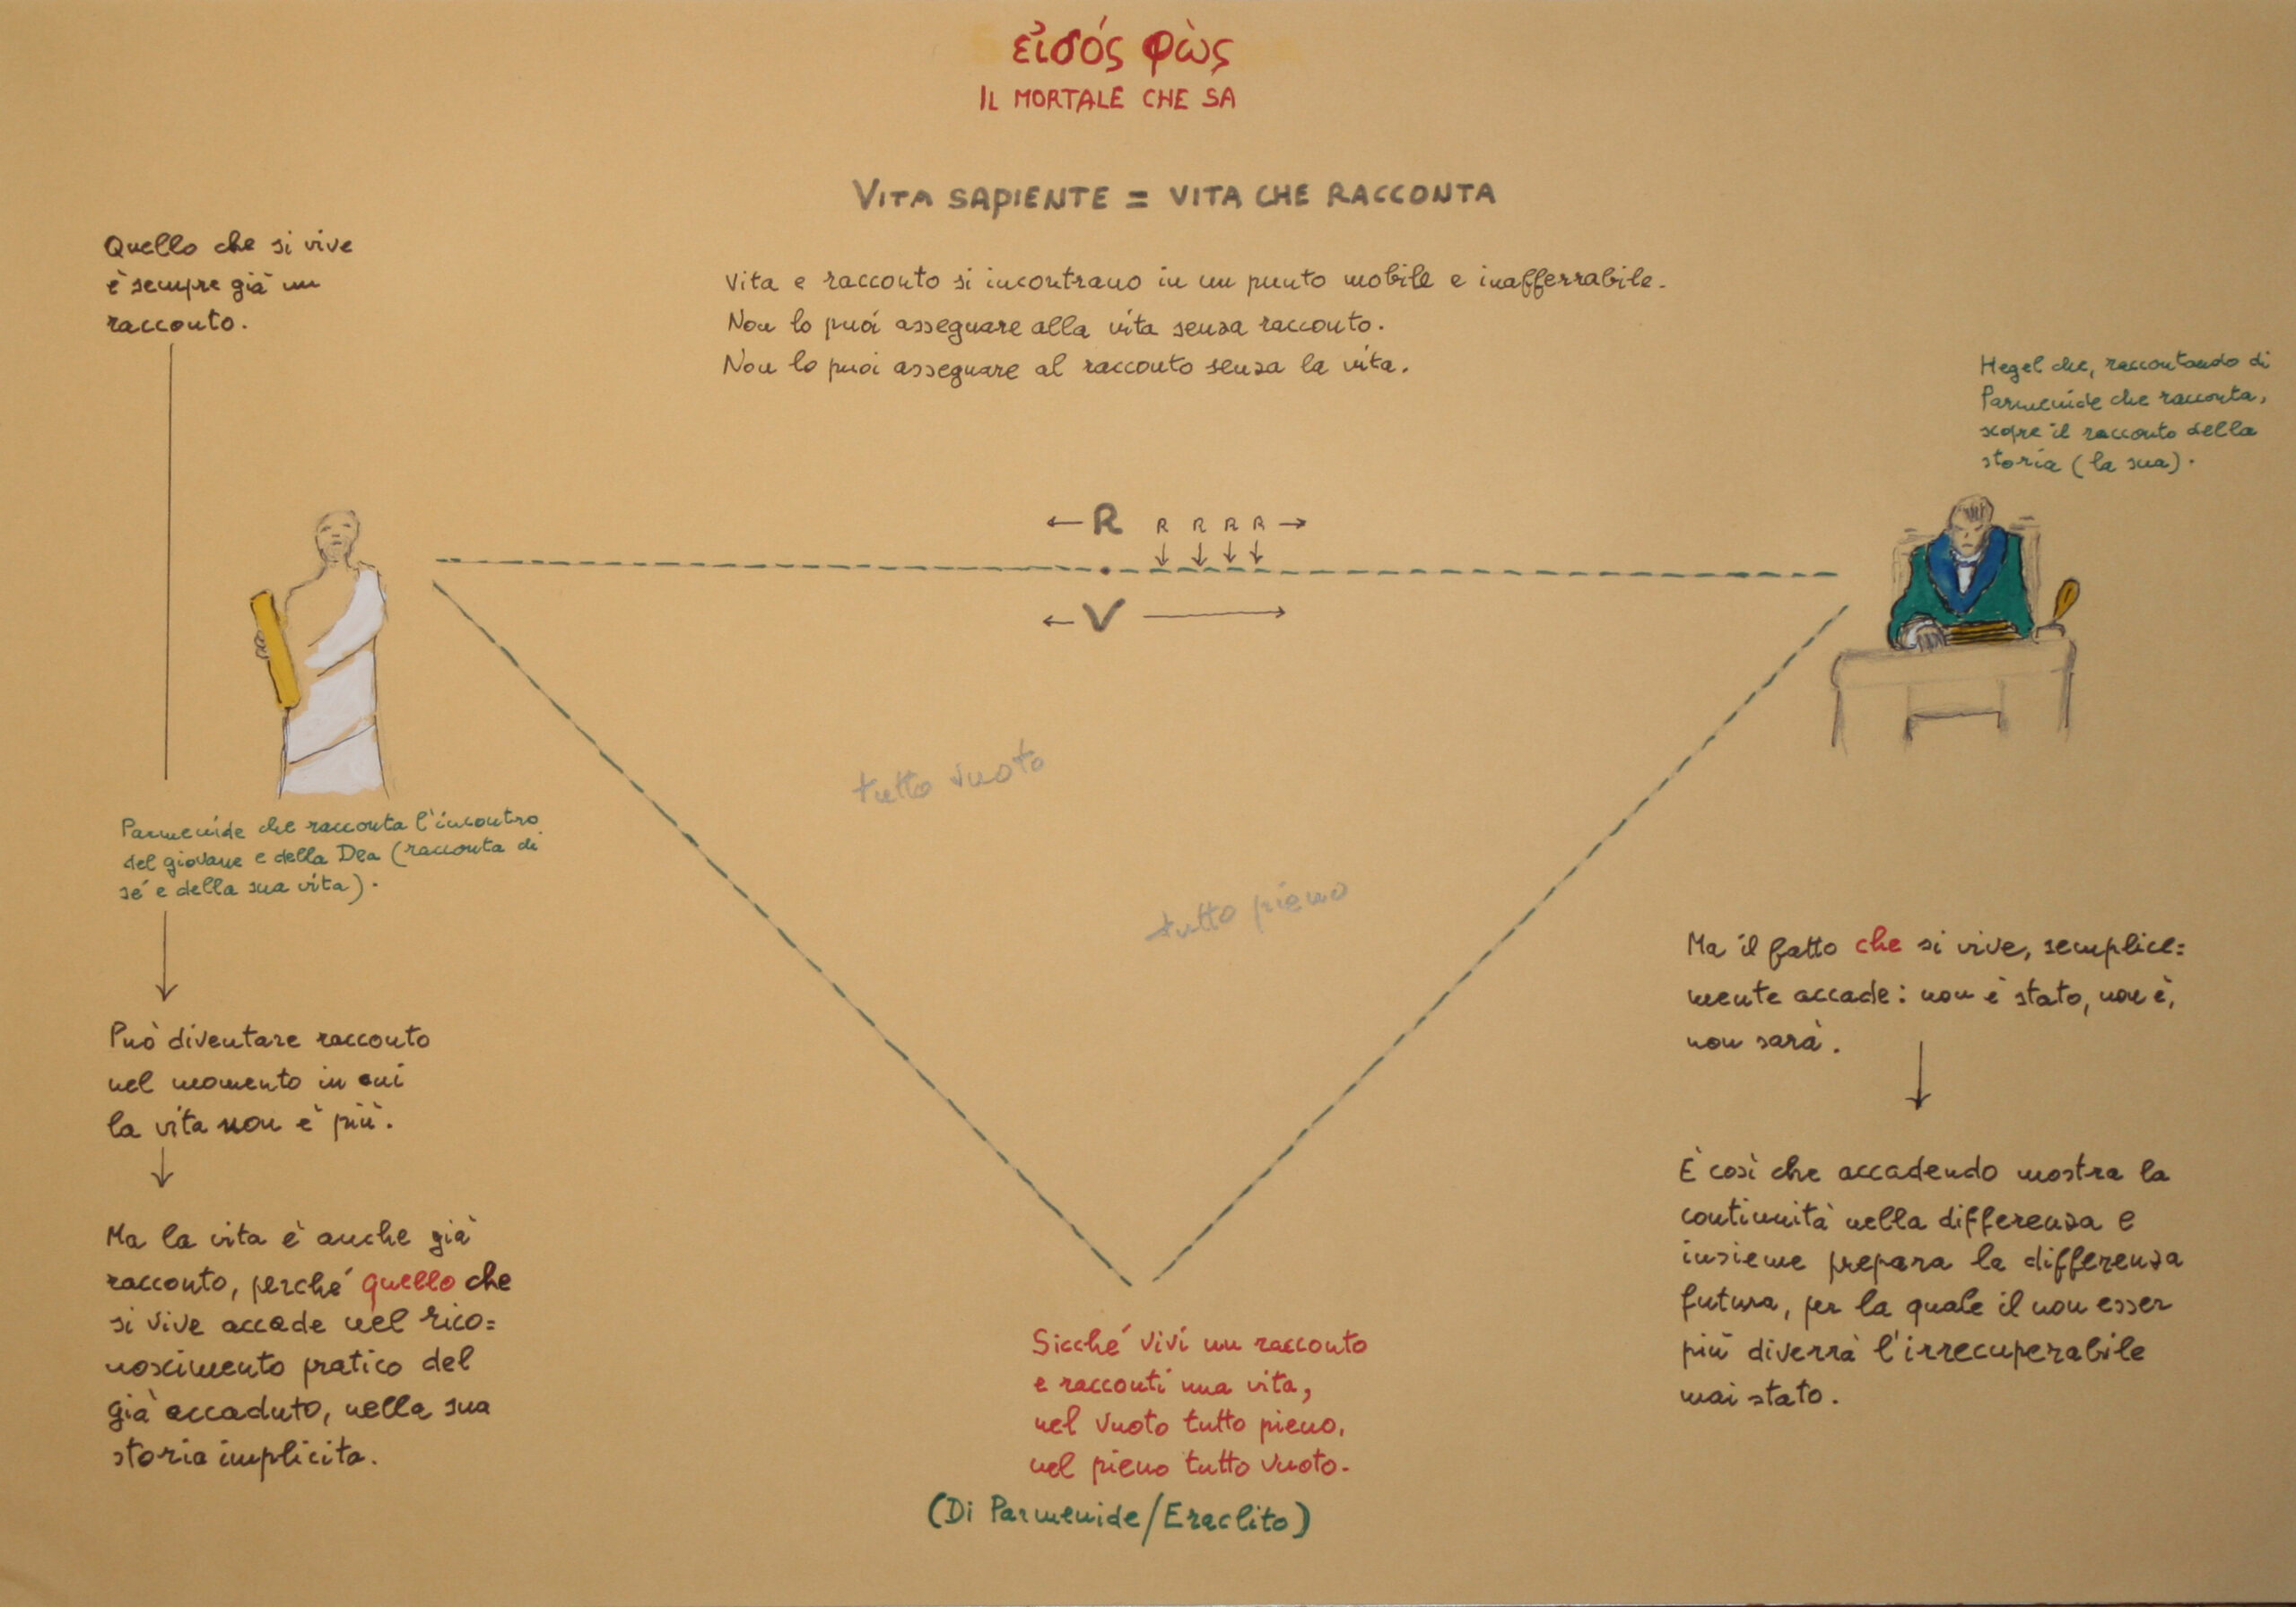 εἰδός φὼς
IL MORTALE CHE SA
VITA SAPIENTE = VITA CHE RACCONTA
Quello che si vive
è sempre già un
racconto.
Vita e racconto si incontrano in un punto mobile e inafferrabile.
Non lo puoi assegnare alla vita senza racconto.
Non lo puoi assegnare al racconto senza la vita.
Hegel che, raccontando di
Parmenide che racconta,
scopre il racconto della
storia (la sua).
← R R R R R →
← V →
tutto vuoto
tutto pieno
Parmenide che racconta l'incontro
del giovane e della Dea (racconta di
sé e della sua vita).
Può diventare racconto
nel momento in cui
la vita non è più.
Ma la vita è anche già
racconto, perché quello che
si vive accade nel rico=
noscimento pratico del
già accaduto, nella sua
storia implicita.
Ma il fatto che si vive, semplice=
mente accade: non è stato, non è,
non sarà.
È così che accadendo mostra la
continuità nella differenza e
insieme prepara la differenza
futura, per la quale il non esser
più diverrà l'irrecuperabile
mai stato.
Sicché vivi un racconto
e racconti una vita,
nel vuoto tutto pieno,
nel pieno tutto vuoto.
(Di Parmenide/Eraclito)